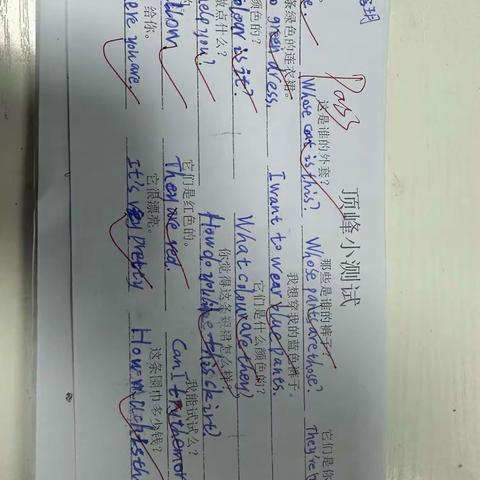 玥
Pass
顶峰小测试
这是谁的外套? 那些是谁的裤子? 它们是你
Whose coat is this? Whose pants are those? They're
条绿色的连衣裙。 我想穿我的蓝色裤子。
green dress. I want to wear blue pants.
颜色的? 它们是什么颜色的?
is it? What colour are they?
做点什么? 你觉得这条短裙怎么样?
help you? How do you like this skirt?
的 它们是红色的。 我能试试么?
They are red. Can I try them on
给你。 它很漂亮。 这条围巾多少钱?
you are. It's very pretty How much is th